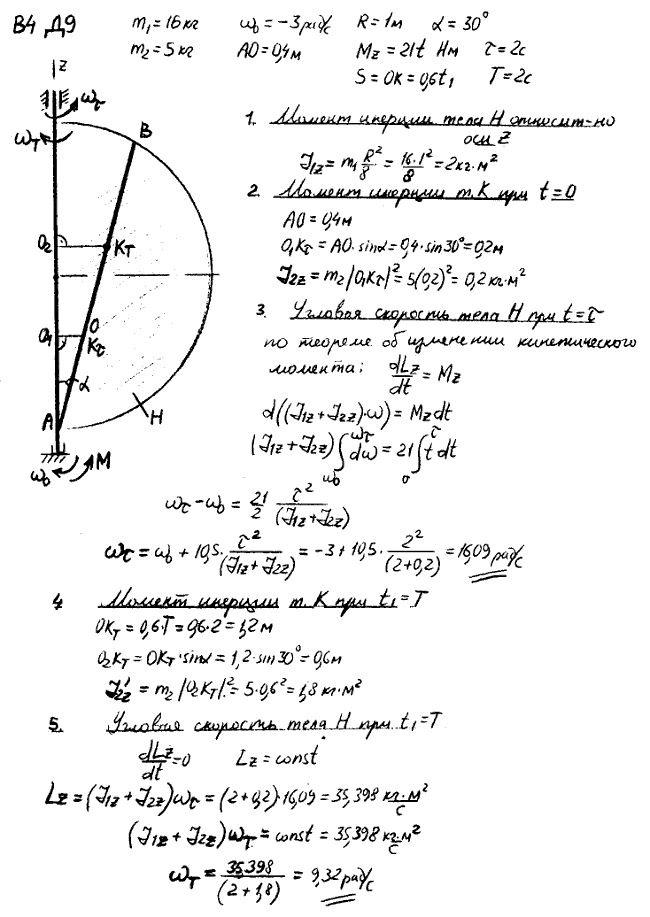 В4 Д9
m₁=16кг ω₀=-3рад/с R=1м α=30°
m₂=5кг AO=0,4м Mz=21t Нм τ=2с
S=OK=0,6t₁ T=2с
z
ωτ
ωT
B
O₂
KT
O₁
O
Kτ
α
A
H
M
ω₀
1. Момент инерции тела Н относит-но
оси Z
J1z=m₁R²/8=16·1²/8=2кг·м²
2. Момент инерции т.К при t=0
AO=0,4м
O₁Kτ=AO·sinα=0,4·sin30°=0,2м
J2z=m₂|O₁Kτ|²=5(0,2)²=0,2кг·м²
3. Угловая скорость тела Н при t=τ
по теореме об изменении кинетического
момента: dLz/dt=Mz
d((J1z+J2z)·ω)=Mzdt
(J1z+J2z)∫ω₀^ωτ dω=21∫₀^τ t dt
ωτ-ω₀=21/2 τ²/(J1z+J2z)
ωτ=ω₀+10,5·τ²/(J1z+J2z)=-3+10,5·2²/(2+0,2)=16,09рад/с
4 Момент инерции т.К при t₁=T
OKT=0,6·T=0,6·2=1,2м
O₂KT=OKT·sinα=1,2·sin30°=0,6м
J2z'=m₂|O₂KT|²=5·0,6²=1,8кг·м²
5. Угловая скорость тела Н при t₁=T
dLz/dt=0 Lz=const
Lz=(J1z+J2z)ωτ=(2+0,2)·16,09=35,398 кг·м²/с
(J1z+J2z)ωT=const=35,398 кг·м²/с
ωT=35,398/(2+1,8)=9,32рад/с